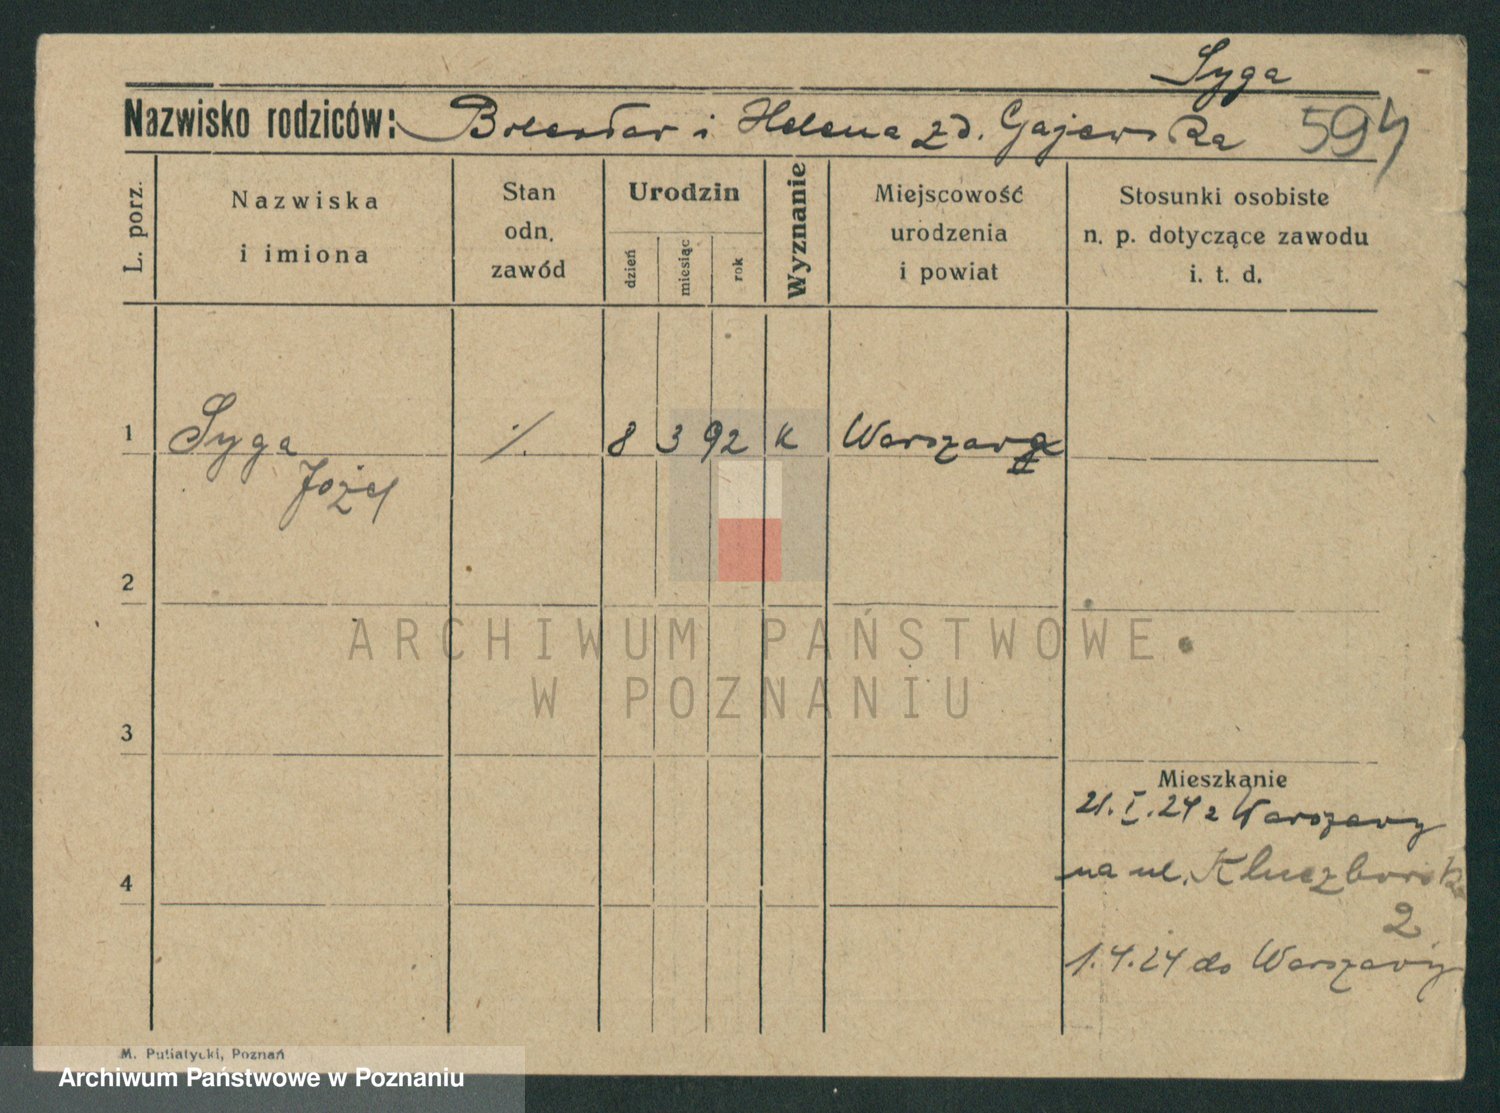 Syga
Nazwisko rodziców: Bolesław i Helena zd. Gajewska 594
L. porz.
Nazwiska
i imiona
Stan
odn.
zawód
Urodzin
dzień
miesiąc
rok
Wyznanie
Miejscowość
urodzenia
i powiat
Stosunki osobiste
n. p. dotyczące zawodu
i. t. d.
1 Syga ./. 8 3 92 K Warszawa
Józef
2
ARCHIWUM PAŃSTWOWE
W POZNANIU
3
Mieszkanie
21.I.24 z Warszawy
na ul. Kluczborska
4
2
1.4.24 do Warszawy
M. Putiatycki, Poznań
Archiwum Państwowe w Poznaniu